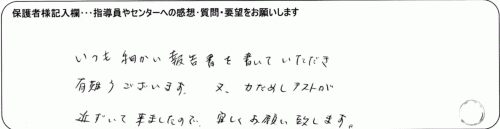 保護者様記入欄･･･指導員やセンターへの感想･質問･要望をお願いします
いつも細かい報告書を書いていただき
有難うございます。 又、力だめしテストが
近ずいて来ましたので、宜しくお願い致します。